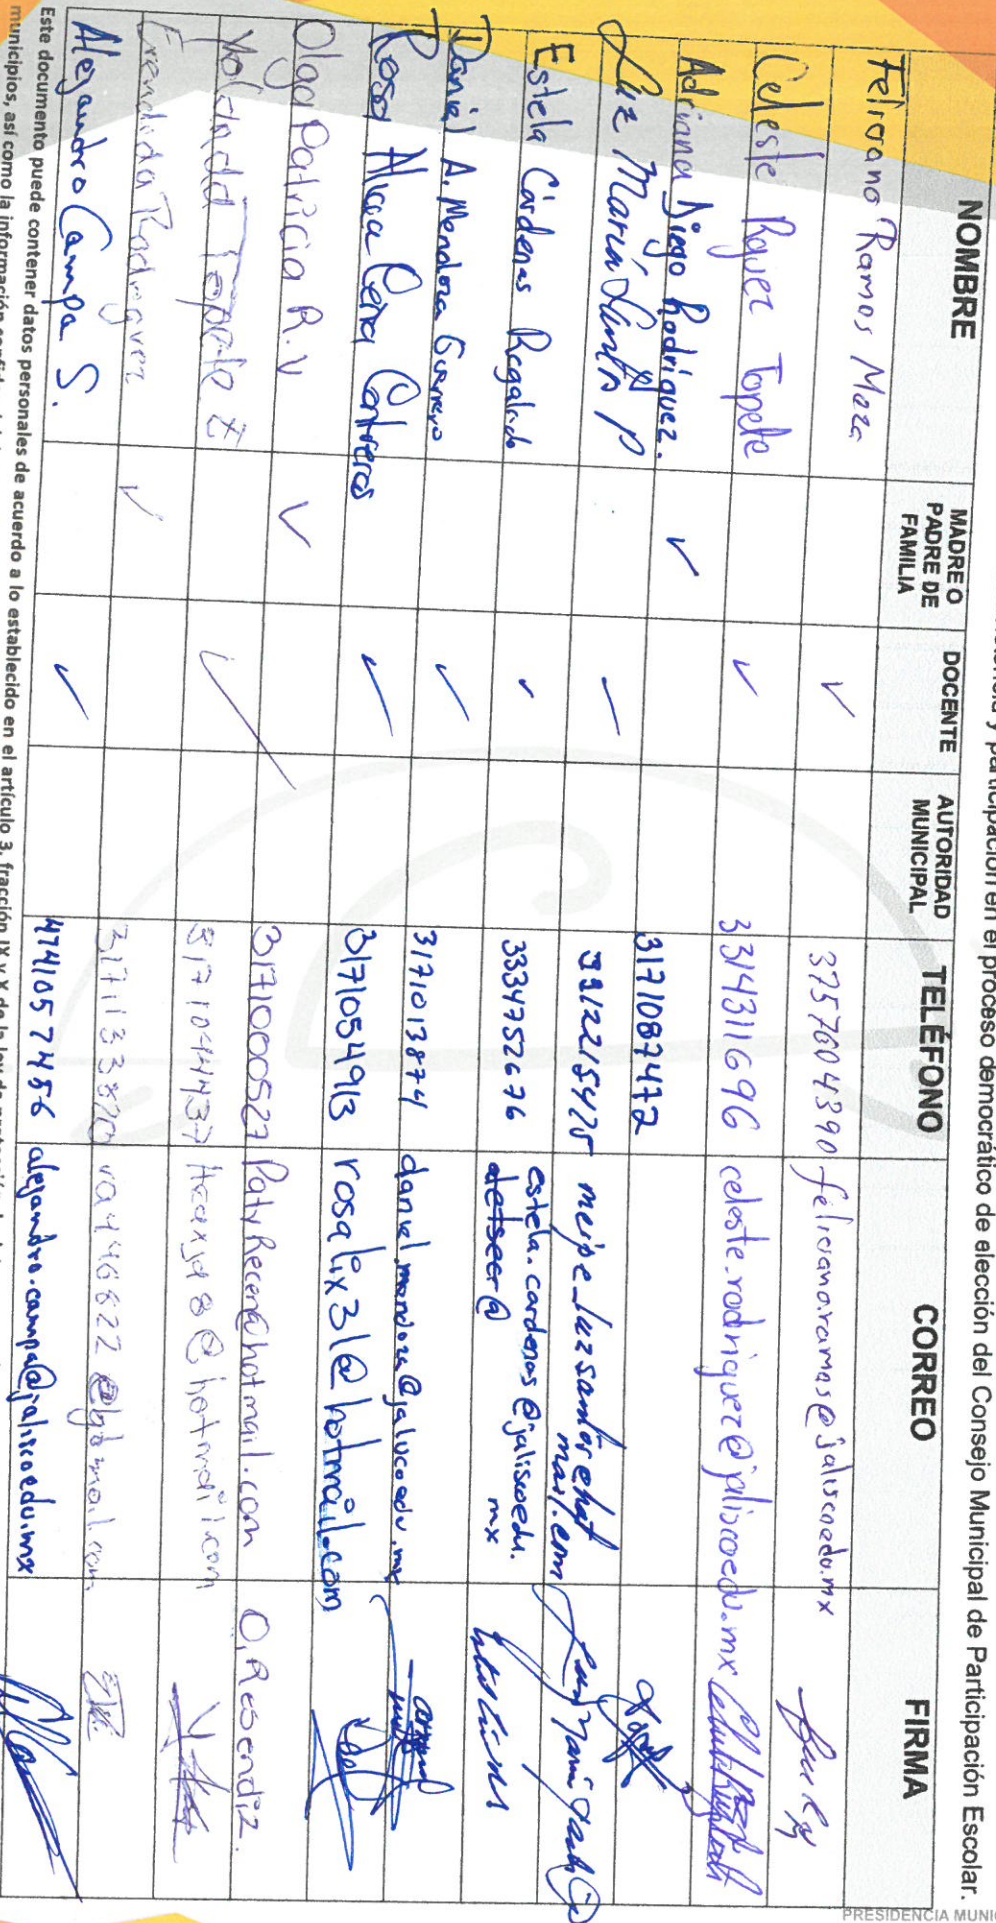 y participación en el proceso democrático de elección del Consejo Municipal de Participación Escolar.
NOMBRE MADRE O PADRE DE FAMILIA DOCENTE AUTORIDAD MUNICIPAL TELÉFONO CORREO FIRMA
Feliciano Ramos Meza ✓ 3757004390 feliciano.ramos@jaliscoedu.mx
Celeste Rguez Topete ✓ 3314311696 celeste.rodriguez@jaliscoedu.mx
Adriana Diego Rodriguez. ✓ 3171087472
Luz María Santos P 3312215475 meipe_luzsantos@hotmail.com
Estela Cárdenas Regalado ✓ 3334752676 estela.cardenas@jaliscoedu.mx
Daniel A. Mendoza Guerrero ✓ 3171013874 daniel.mendoza@jaliscoedu.mx
Rosa Alicia Peña Contreras ✓ 3171054913 rosalix31@hotmail.com
Olga Patricia R.V ✓ 3171000527 PatyRecen@hotmail.com O. Resendiz.
Yolanda Topete Z ✓ 3171044437 @hotmail.com
Rodriguez ✓ 3171133820
Alejandro Campa S. ✓ 4741057456 alejandro.campa@jaliscoedu.mx
Este documento puede contener datos personales de acuerdo a lo establecido en el artículo 3, fracción IX y X de la ley de
municipios, así como la información
PRESIDENCIA MUNI